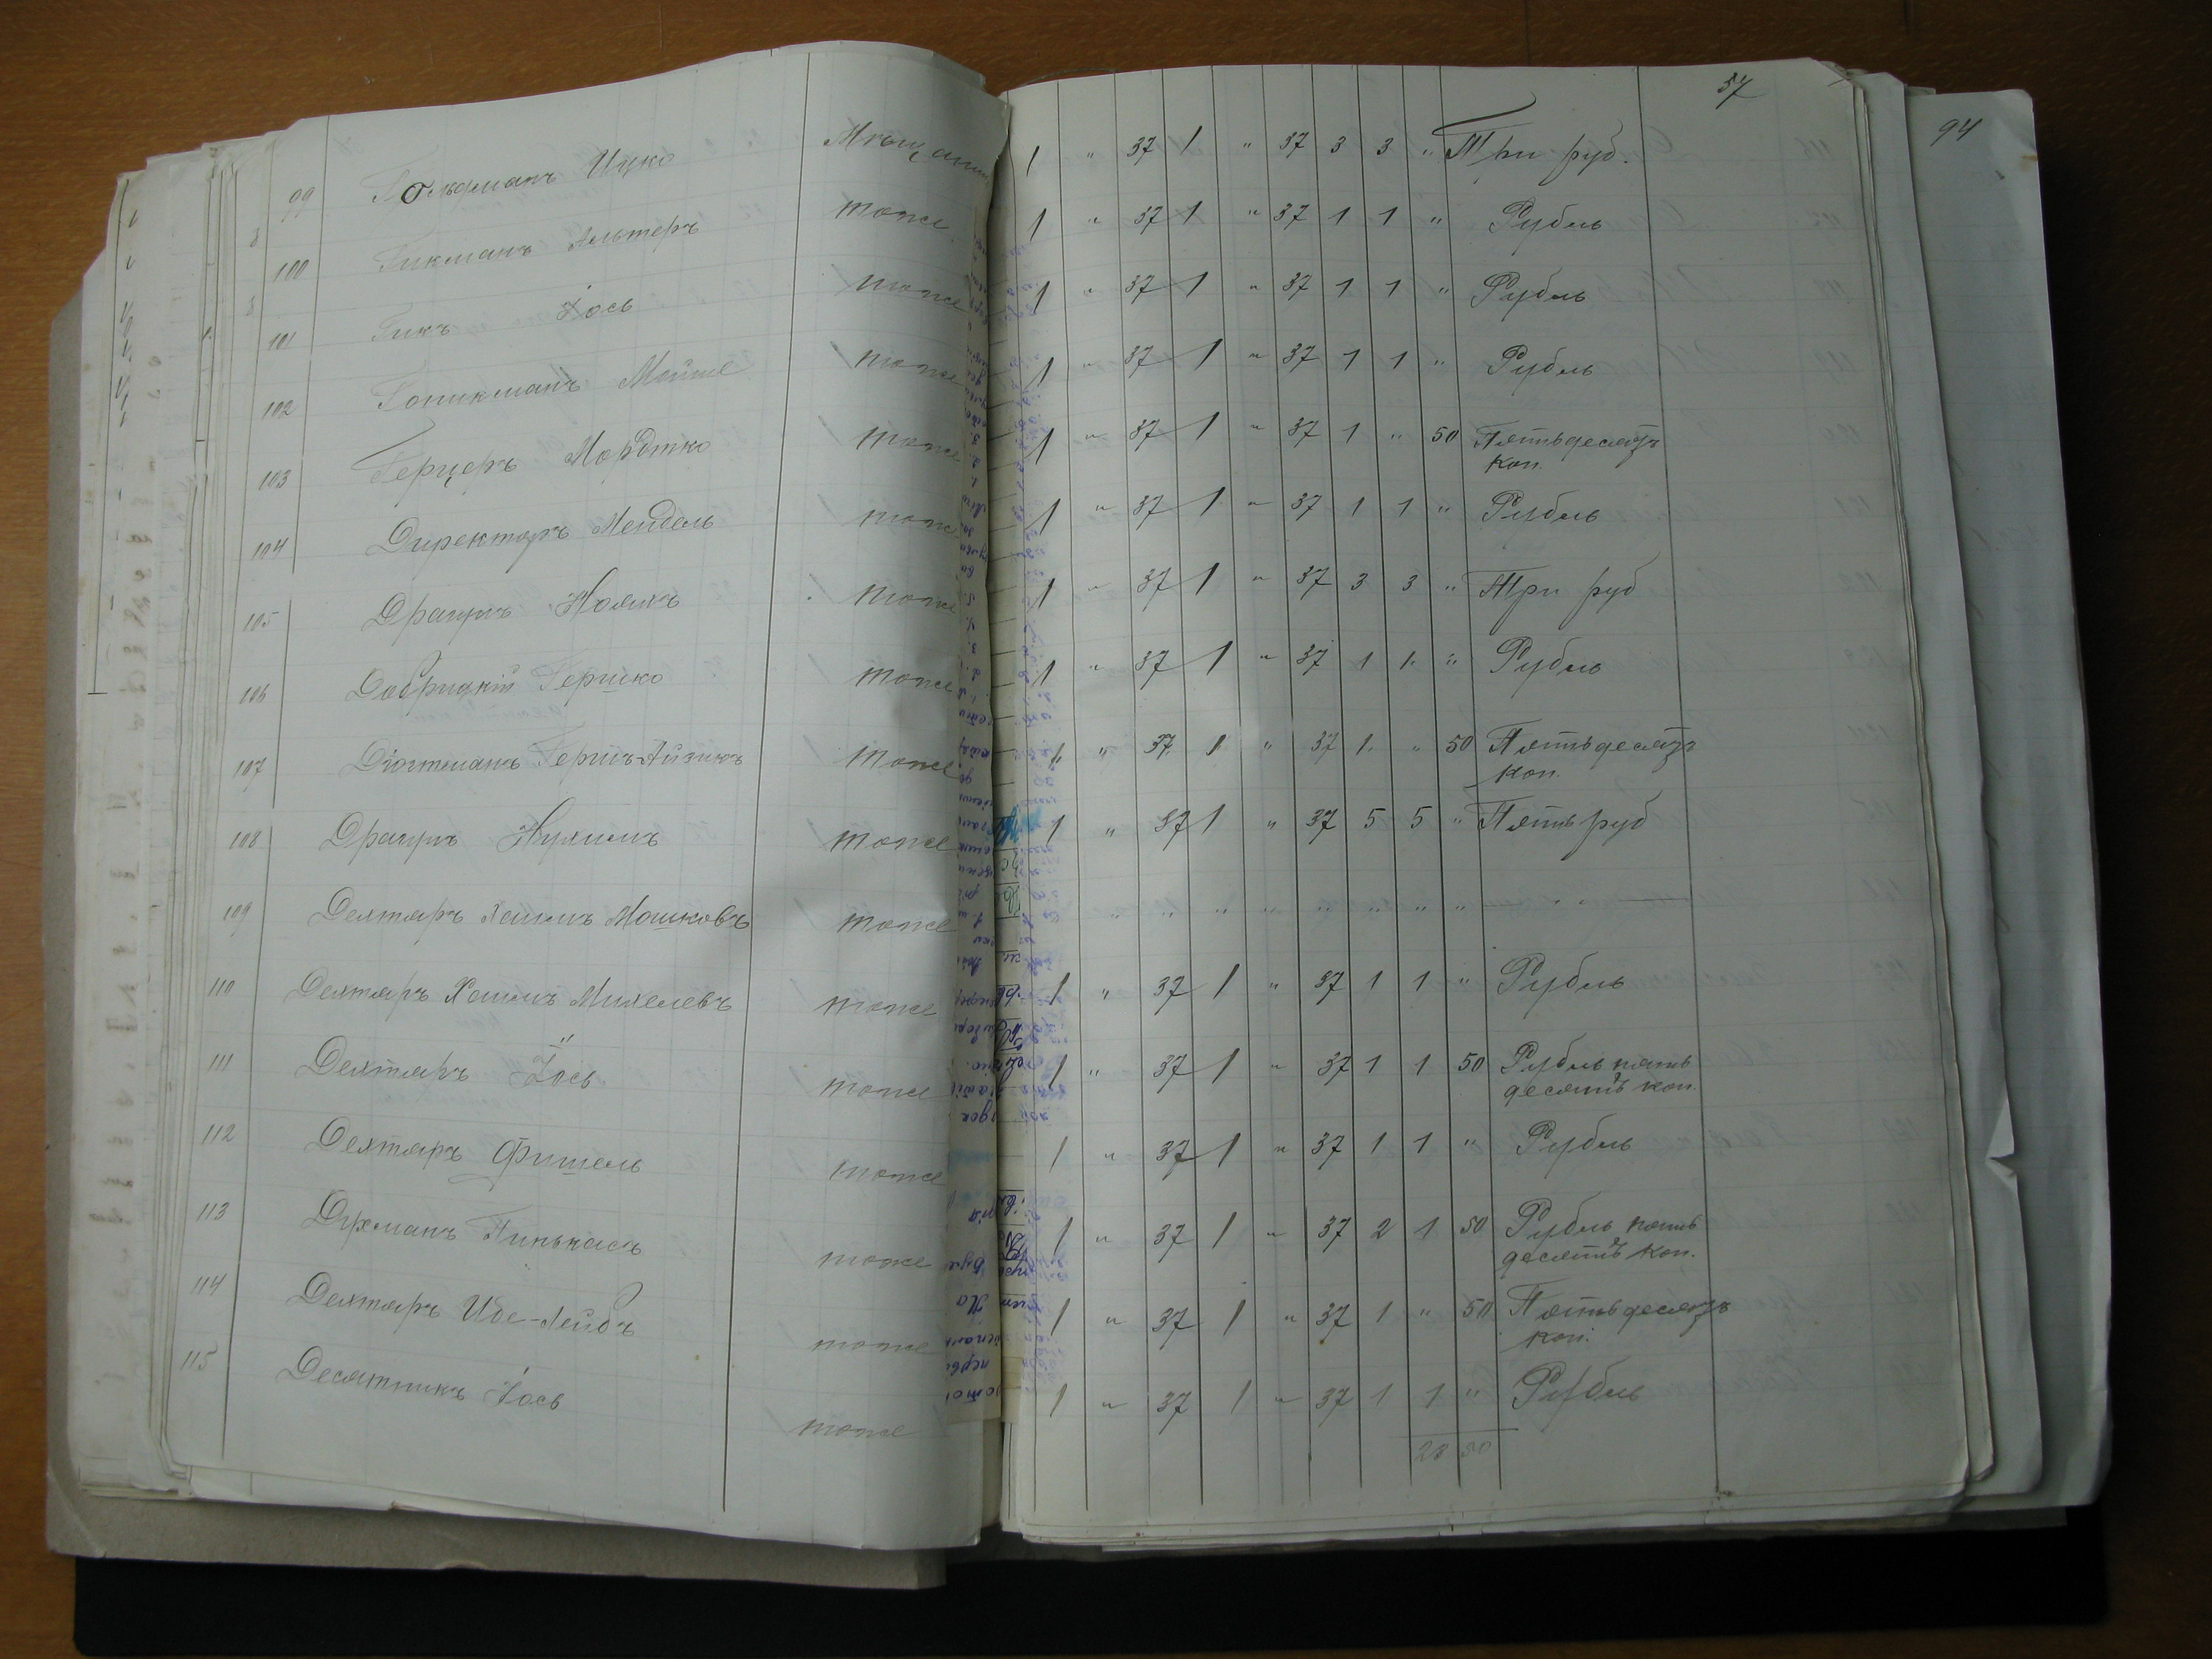 57
94
99 Гольдманъ Ицко Мѣщанин 1 " 37 1 " 37 3 3 " Три руб.
100 Гикманъ Альтеръ тоже 1 " 37 1 " 37 1 1 " Рубль
101 Гикъ Іось тоже 1 " 37 1 " 37 1 1 " Рубль
102 Гоникманъ Мойше тоже 1 " 37 1 " 37 1 1 " Рубль
103 Герцеръ Мордтко тоже 1 " 37 1 " 37 1 " 50 Пятьдесятъ
коп.
104 Директоръ Мендель тоже 1 " 37 1 " 37 1 1 " Рубль
105 Драгунъ Нояхъ тоже 1 " 37 1 " 37 3 3 " Три руб
106 Добрицкій Гершко тоже 1 " 37 1 " 37 1 1 " Рубль
107 Дюхтманъ Гершъ-Айзикъ тоже 1 " 37 1 " 37 1 " 50 Пятьдесятъ
коп.
108 Драгунъ Нухимъ тоже 1 " 37 1 " 37 5 5 " Пять руб
109 Дехтяръ Хаимъ Мошковъ тоже " " " " " " " "
110 Дехтяръ Хаимъ Михелевъ тоже 1 " 37 1 " 37 1 1 " Рубль
111 Дехтяръ Іось тоже 1 " 37 1 " 37 1 1 50 Рубль пять
десятъ коп.
112 Дехтяръ Фишель тоже 1 " 37 1 " 37 1 1 " Рубль
113 Духманъ Пинькасъ тоже 1 " 37 1 " 37 2 1 50 Рубль пять
десятъ коп.
114 Дехтяръ Иде-Лейбъ тоже 1 " 37 1 " 37 1 " 50 Пятьдесятъ
коп.
115 Десятникъ Іось тоже 1 " 37 1 " 37 1 1 " Рубль
23 50